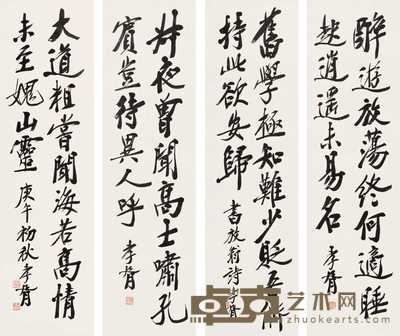 醉遊放蕩終何適睡
越逍遥未易名 孝胥
舊學極知難少貶吾儕
持此欲安歸 書放翁詩孝胥
井夜曾聞高士嘯孔
賓豈待異人呼 孝胥
大道粗嘗聞海若高情
未至媿山靈 庚午初秋孝胥
卓克艺术网